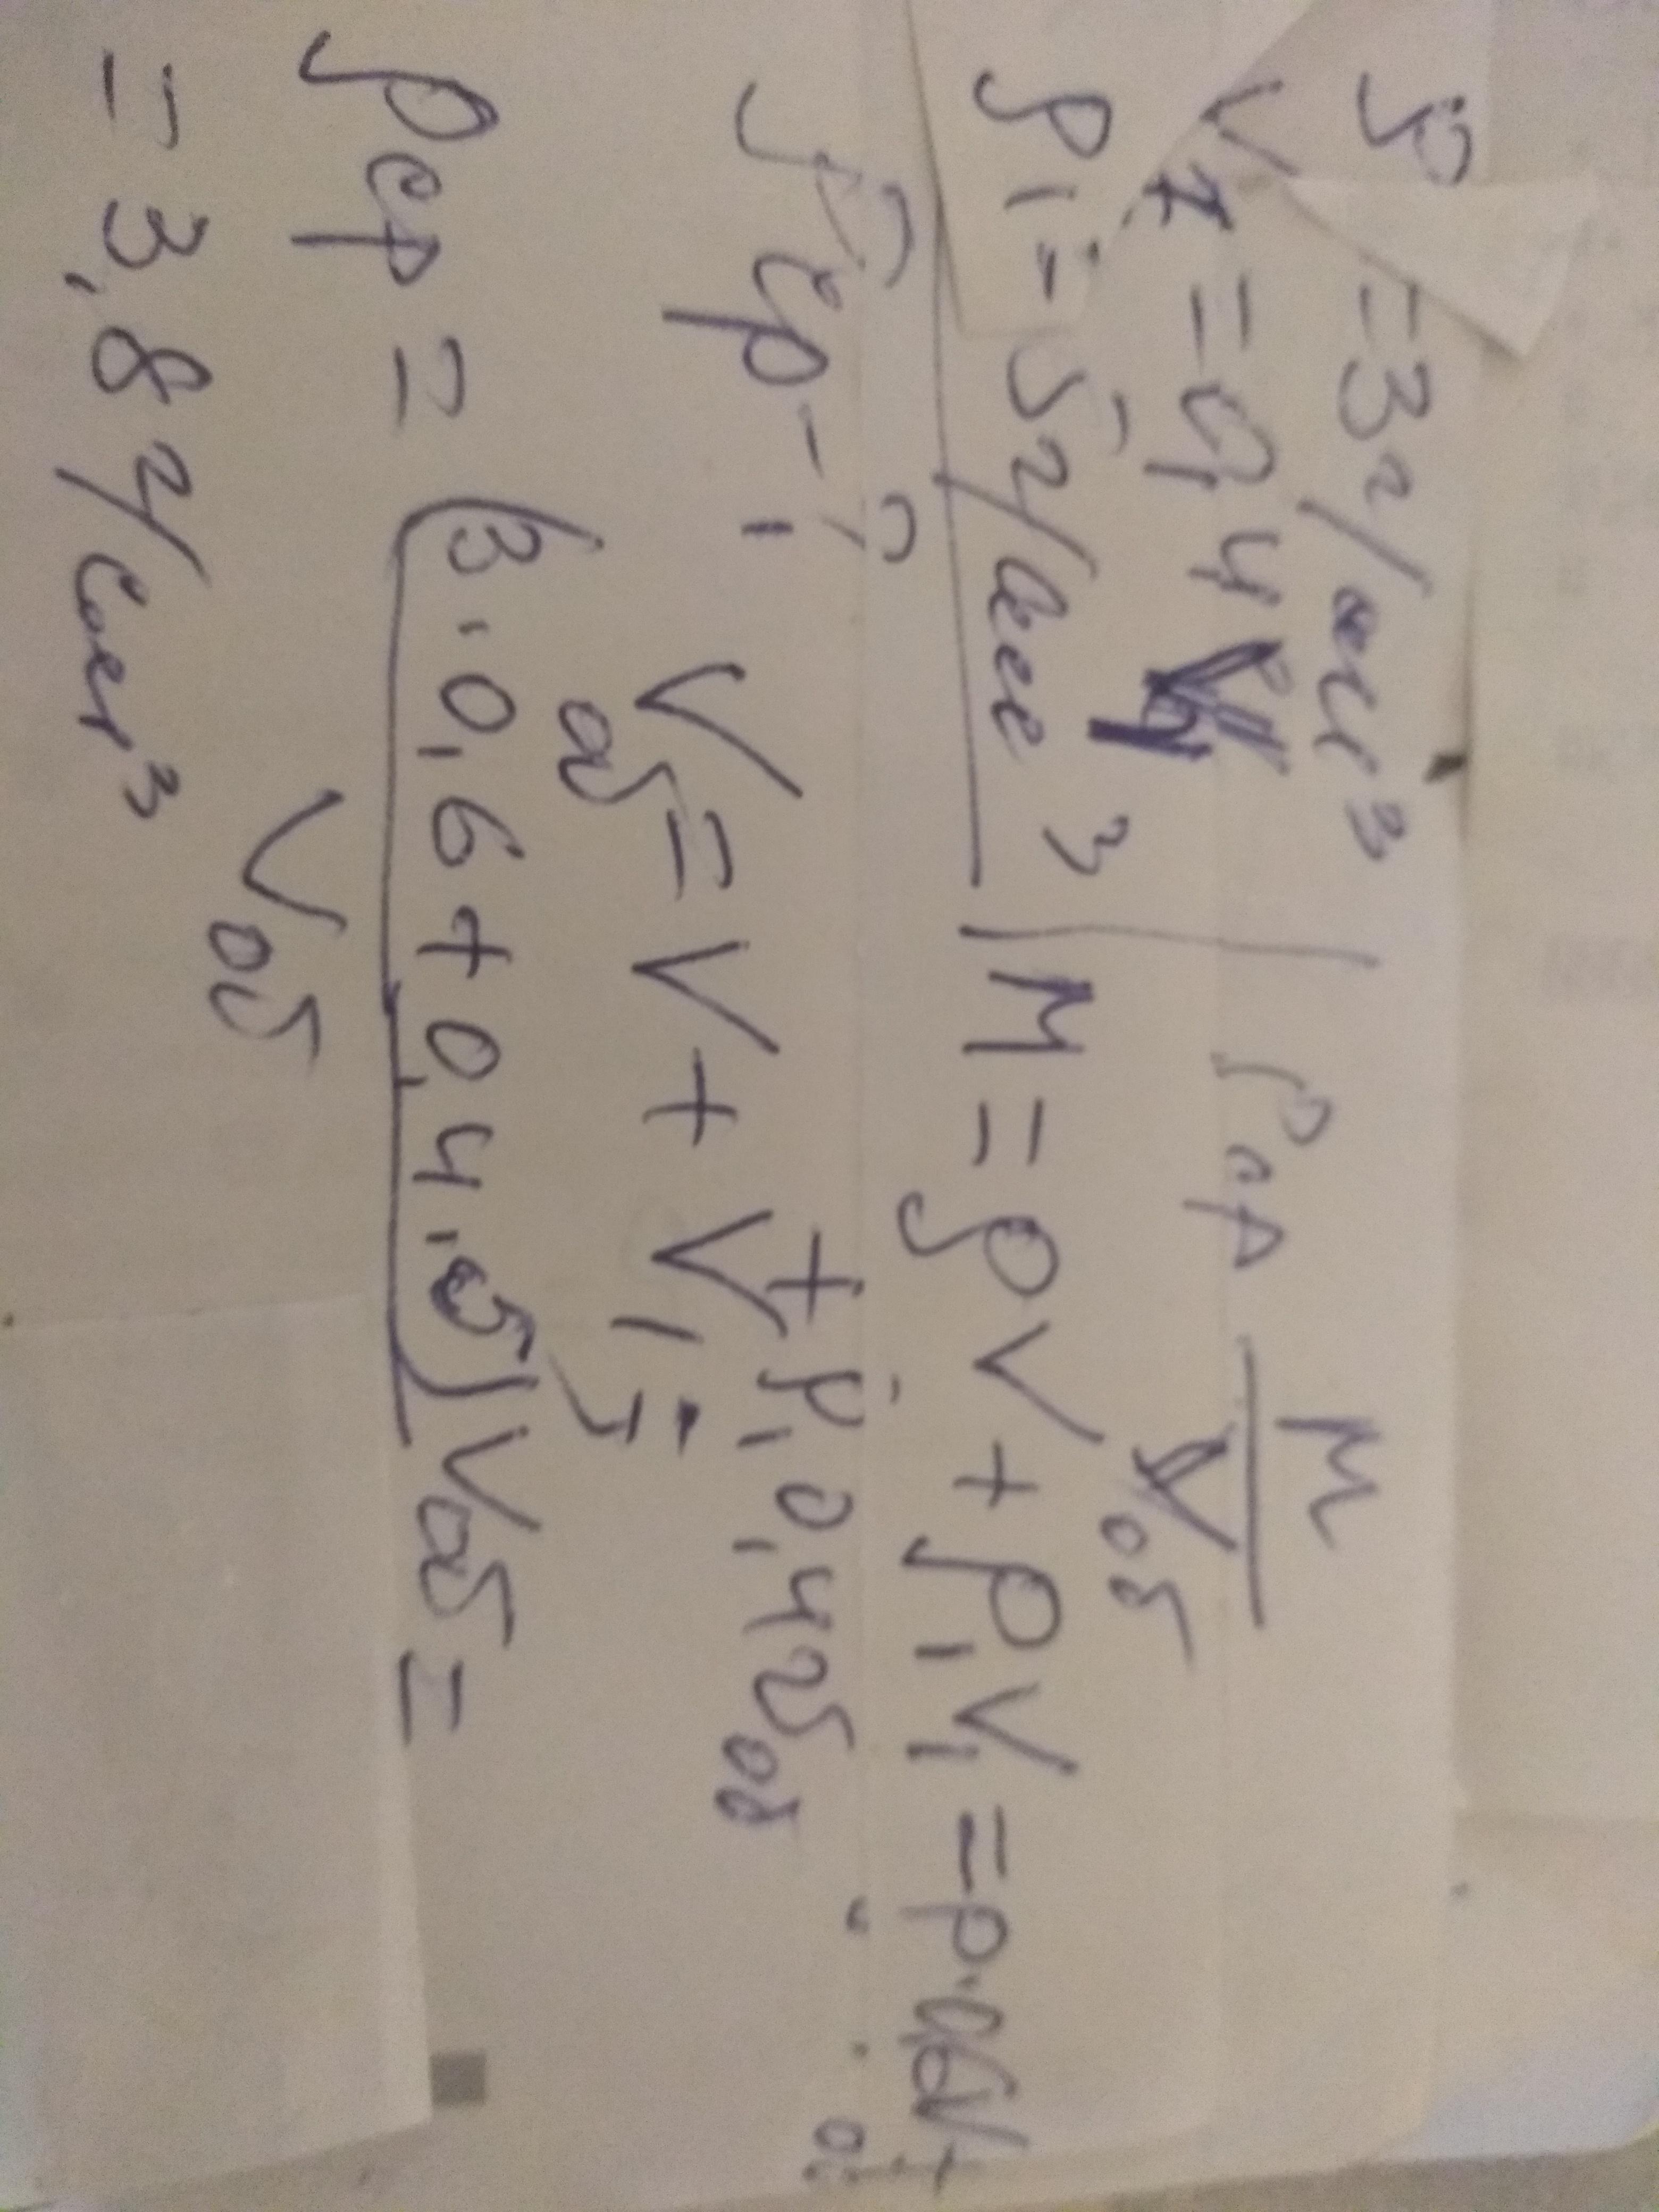 ρ = 3 г/см³
V₁ = 0,4 V
ρ₁ = 5 г/см³
ρср M / Vоб
M = ρV + ρ₁V₁ = ρ·
ρср - ?
+ ρ₁ 0,4 Vоб
Vоб = V + V₁
ρср = (3·0,6 + 0,4·5) Vоб =
Vоб
= 3,8 г/см³